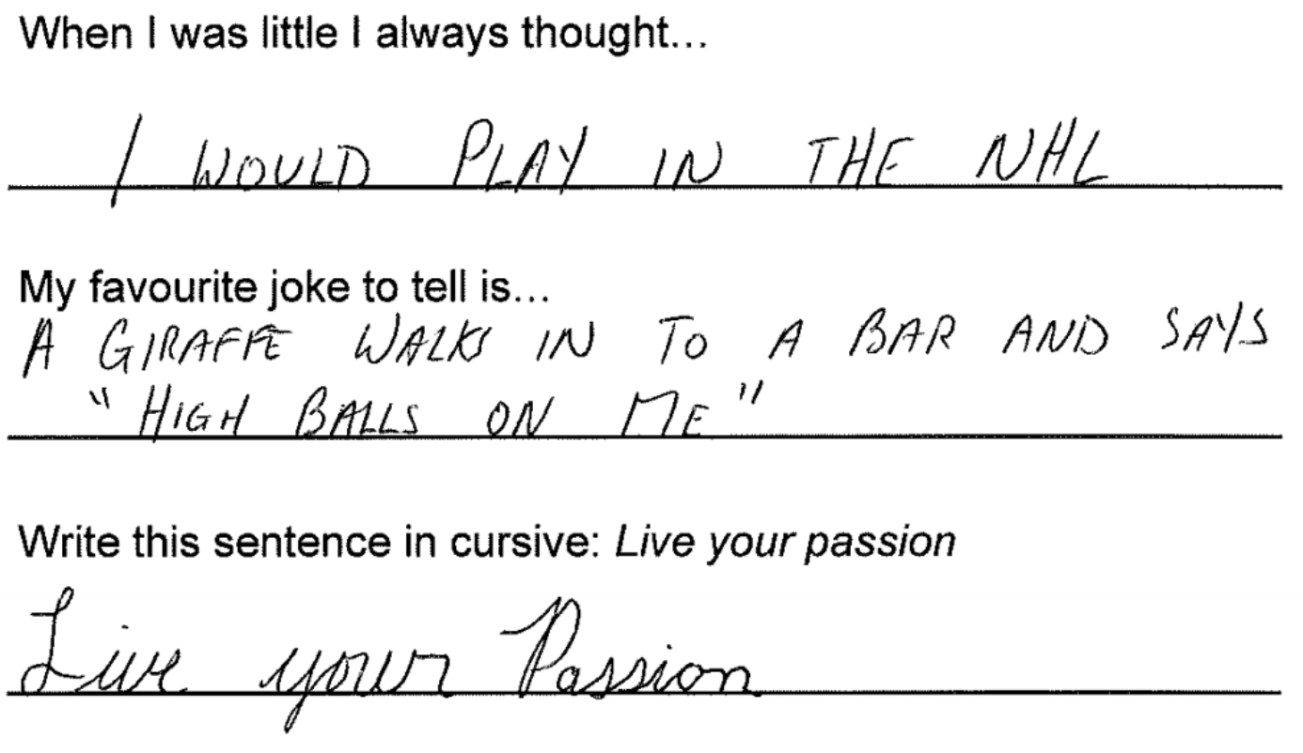 When I was little I always thought...
I WOULD PLAY IN THE NHL
My favourite joke to tell is...
A GIRAFFE WALKS IN TO A BAR AND SAYS
"HIGH BALLS ON ME"
Write this sentence in cursive: Live your passion
Live your Passion